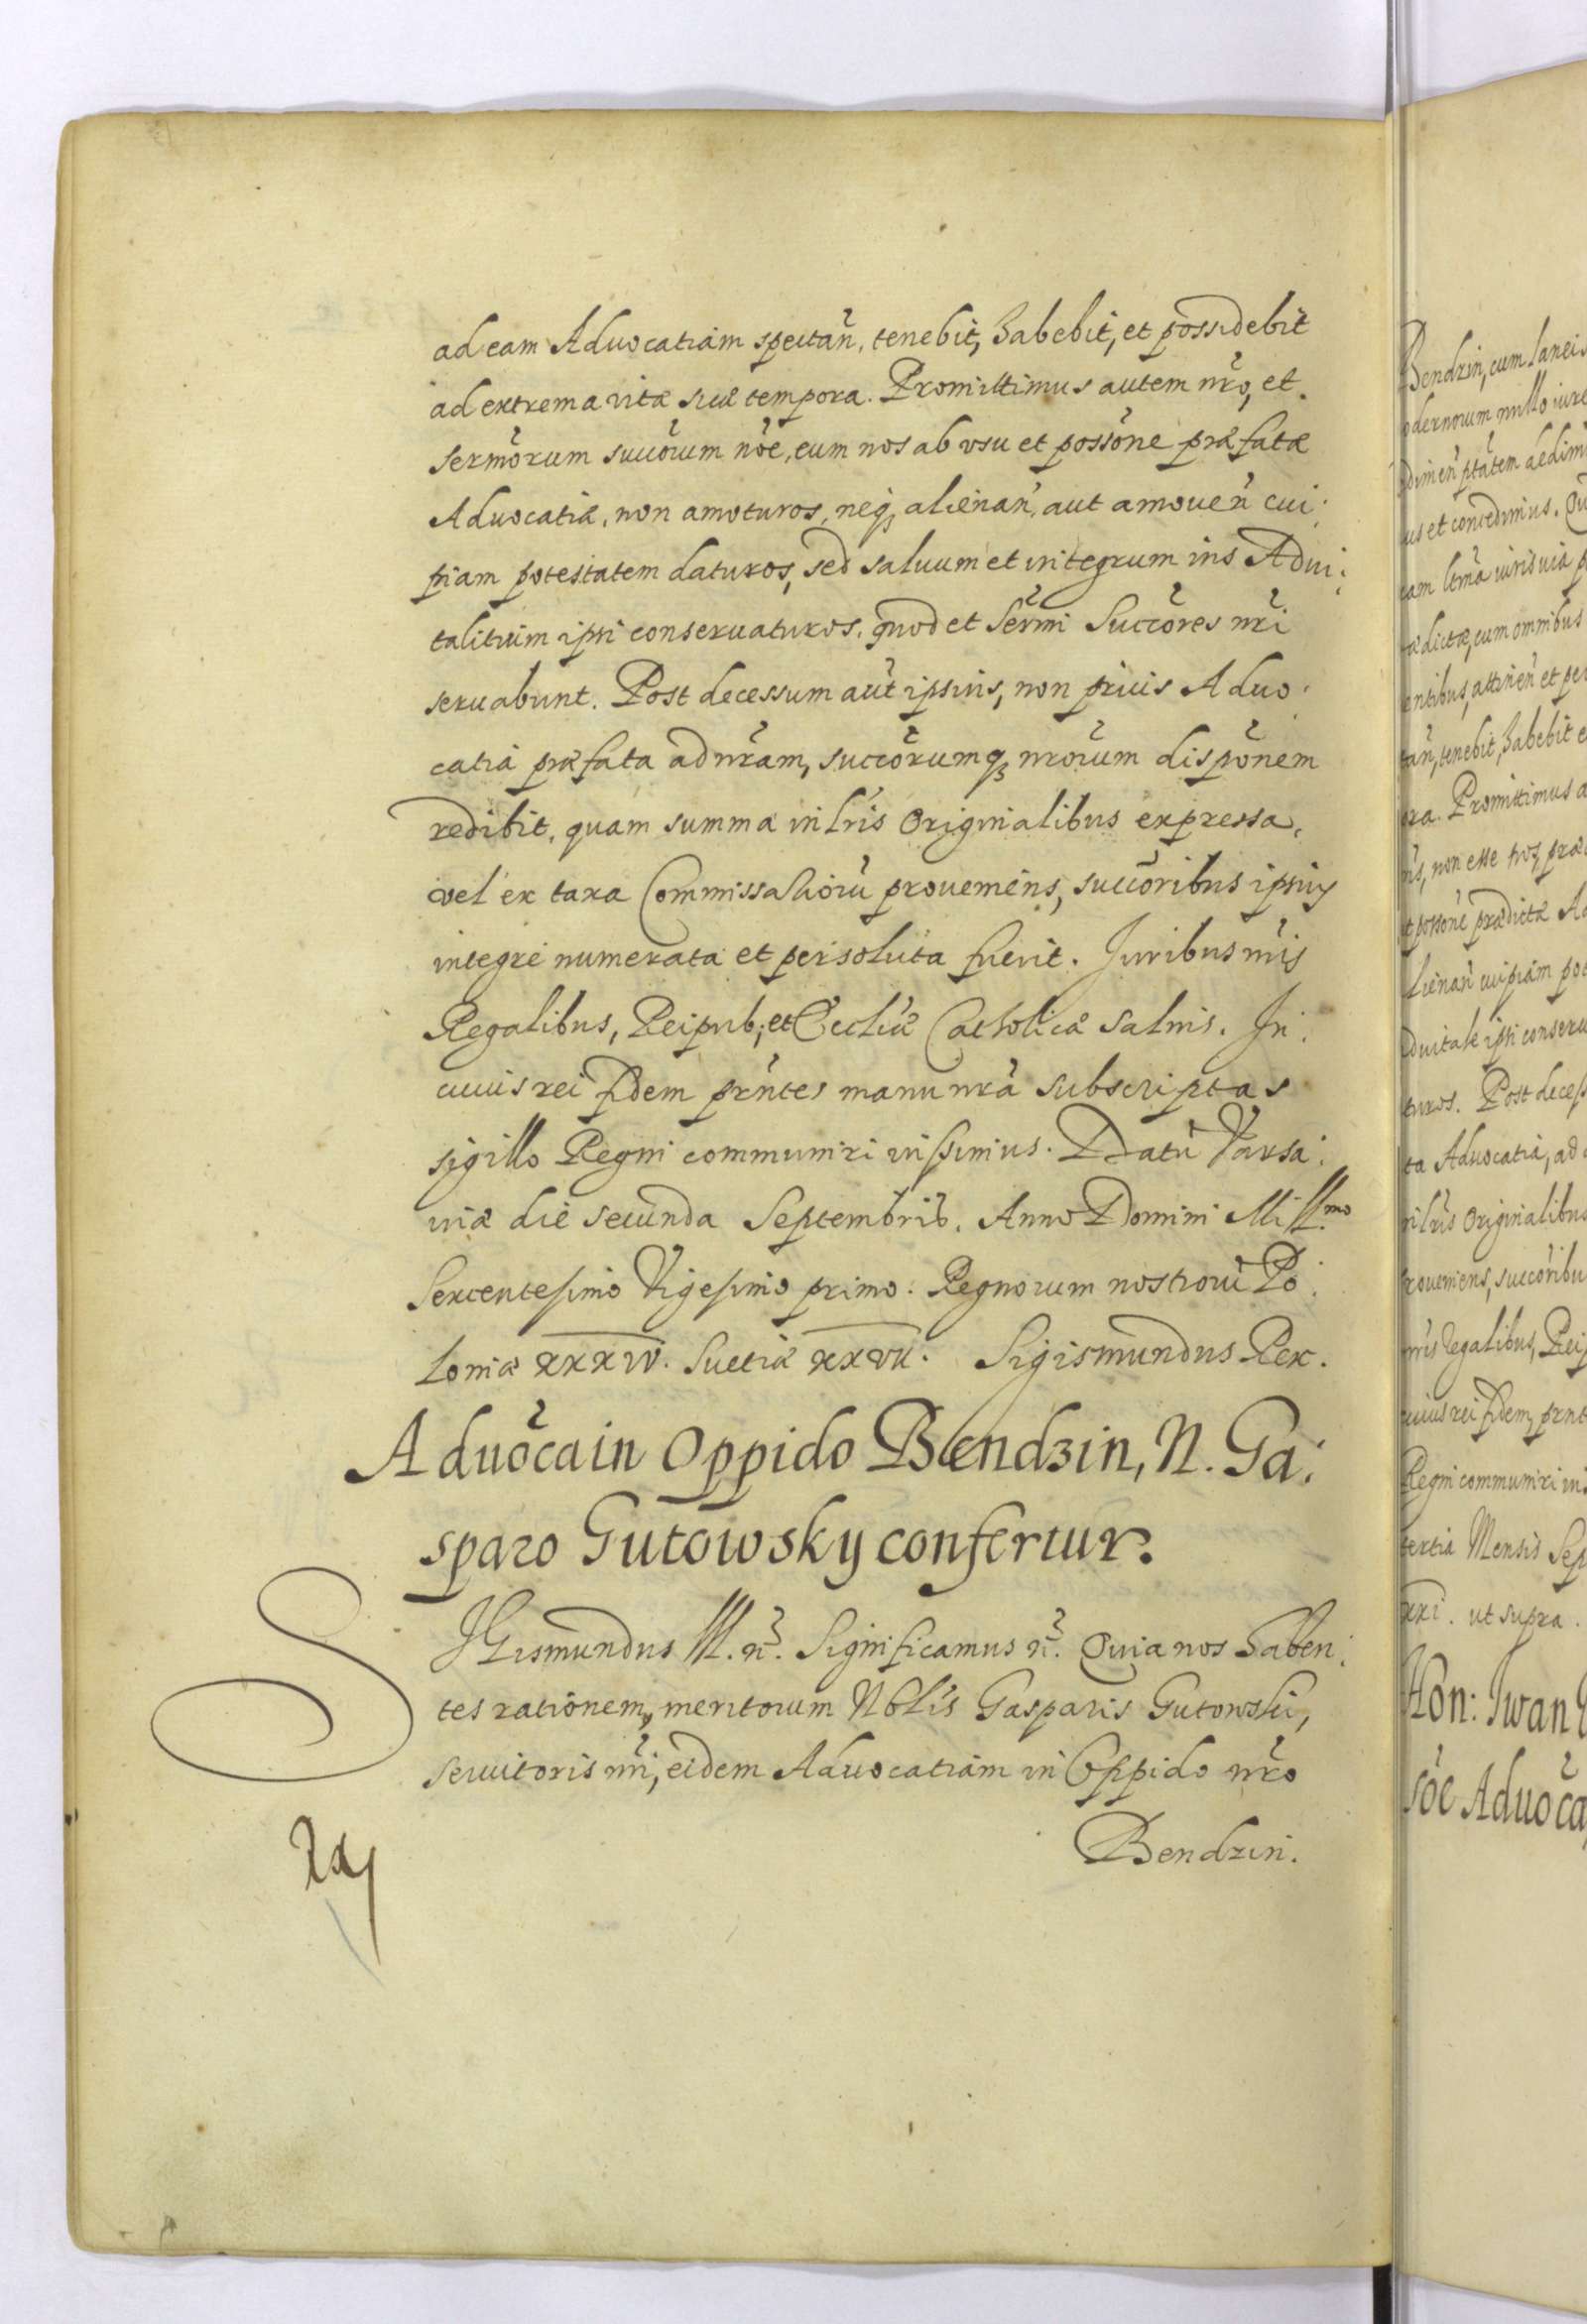 ad eam Aduocatiam spectan̄, tenebit, habebit, et possidebit
ad extrema vitæ suæ tempora. Promittimus autem nr̄o, et
sermōrum succōrum nōe, eum nos ab vsu et possōne præfatæ
Aduocatiæ, non amoturos, neq₃ alienan̄, aut amouen̄ cui:
piam potestatem daturos, sed saluum et integrum ius Adui:
talituim ipsi conseruaturos. quod et Serm̄i Succōres nr̄i
seruabunt. Post decessum aūt ipsius, non prius Aduo:
catia præfata ad nr̄am, succōrumq₃ nr̄orum dispōnem
redibit, quam summa in lr̄is Originalibus expressa,
vel ex taxa Commissariorū proueniens, succōribus ipsius
integre numerata et persoluta fuerit. Juribus nr̄is
Regalibus, Reipub; et Eccliæ Catholicæ saluis. In
cuius rei fidem pr̄ntes manu nr̄a subscriptas
sigillo Regni communiri iussimus. Datū Varsa:
uiæ die secunda Septembris. Anno Domini Mill̄mo
Sexcentesimo Vigesimo primo. Regnorum nostrorū Po:
loniæ xxxiv. Suetiæ xxvii. Sigismundus Rex.
Aduōca in Oppido Bendzin, N. Ga:
sparo Gutowsky confertur.
SIGismundus III. n̄. Significamus n̄. Quia nos haben:
tes rationem, meritorum Nblis Gasparis Gutowski,
seruitoris nr̄i, eidem Aduocatiam in Oppido nr̄o
Bendzin.
Bendzin, cum laneis
odernorum nullo iure
dimen̄ ptātem dedim
us et concedimus. Qu
ædictæ, cum omnibus
entibus, attinen̄ et per
tan̄, tenebit, habebit e
ora. Promittimus a
is, non esse nos præ
et possōne prædictæ Ad
lienan̄ cuipiam pot
duitale ipsi conseru
turos. Post decess
ta Aduocatia, ad
in lr̄is Originalibus
roueniens, succōribu
nr̄is Regalibus, Reip
cuius rei fidem, prnt
Regni communiri iu
tertia Mensis Sep
xxi. ut supra.
Hon: Iwan
sōe Aduōca